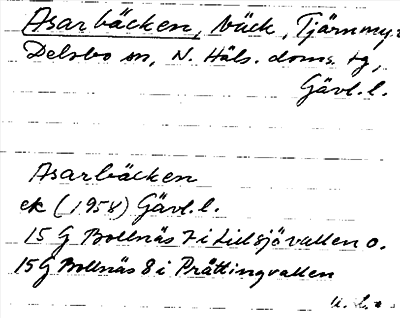 Asarbäcken, bäck, Tjärnmyr
Delsbo sn, N. Häls. doms. tg,
Gävl. l.
Asarbäcken
ek (1958) Gävl. l.
15 G Bollnäs 7 i Lillsjövallen o.
15 G Bollnäs 8 i Pråttingvallen